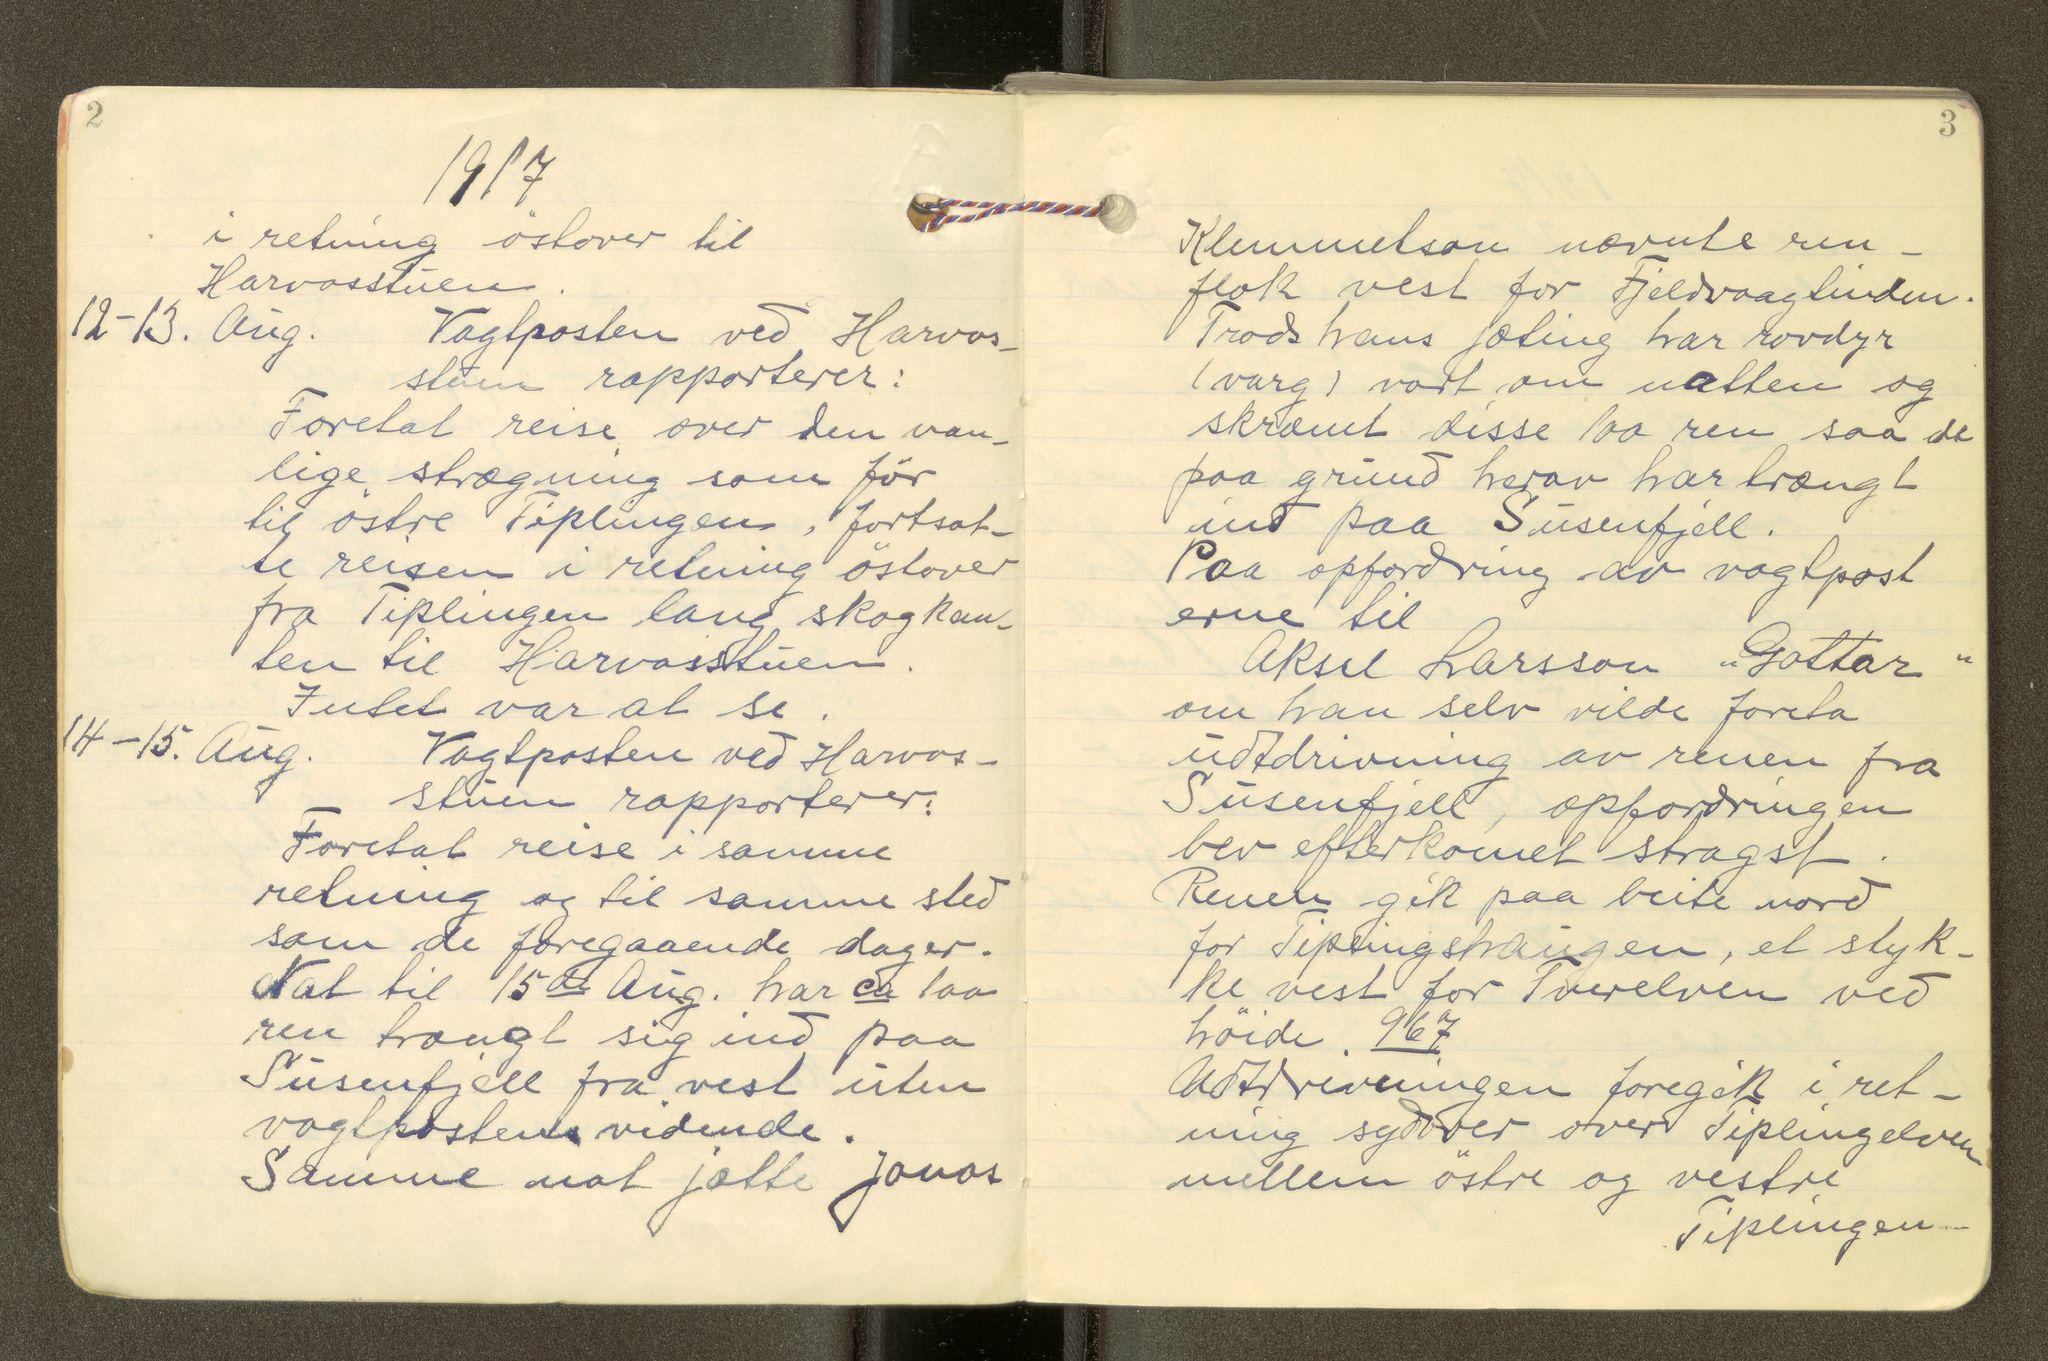 2
1917
i retning östover til
Harvasstuen.
12-13. Aug. Vagtposten ved Harvas-
stuen rapporterer:
Foretat reise over den van-
lige strægning som för
til östre Tiplingen, fortsat-
te reisen i retning östover
fra Tiplingen lang skogkan-
ten til Harvasstuen.
Intet var at se.
14-15. Aug. Vagtposten ved Harvas-
stuen rapporterer:
Foretat reise i samme
retning og til samme sted
som de foregaaende dager.
Nat til 15de Aug. har ca 100
ren trængt sig ind paa
Susenfjell fra vest uten
vagtpostens vidende.
Samme nat jætte Jonas
3
Klemmetson nævnte ren-
flok vest for Fjeldvaagtinden.
Trods hans jæting har rovdyr
(varg) vært om natten og
skræmt disse 100 ren saa de
paa grund herav har trængt
ind paa Susenfjell.
Paa opfordring av vagtpost
erne til
Aksel Larsson "Gottar"
om han selv vilde foreta
udtdrivning av renen fra
Susenfjell, opfordringen
bev efterkomet stragst.
Renen gik paa beite nord
for Tiplingshaugen, et styk-
ke vest for Tverelven ved
höide. 967
Udtdrivningen foregik i ret-
ning sydover over Tiplingelven
mellem östre og vestre
Tiplingen-